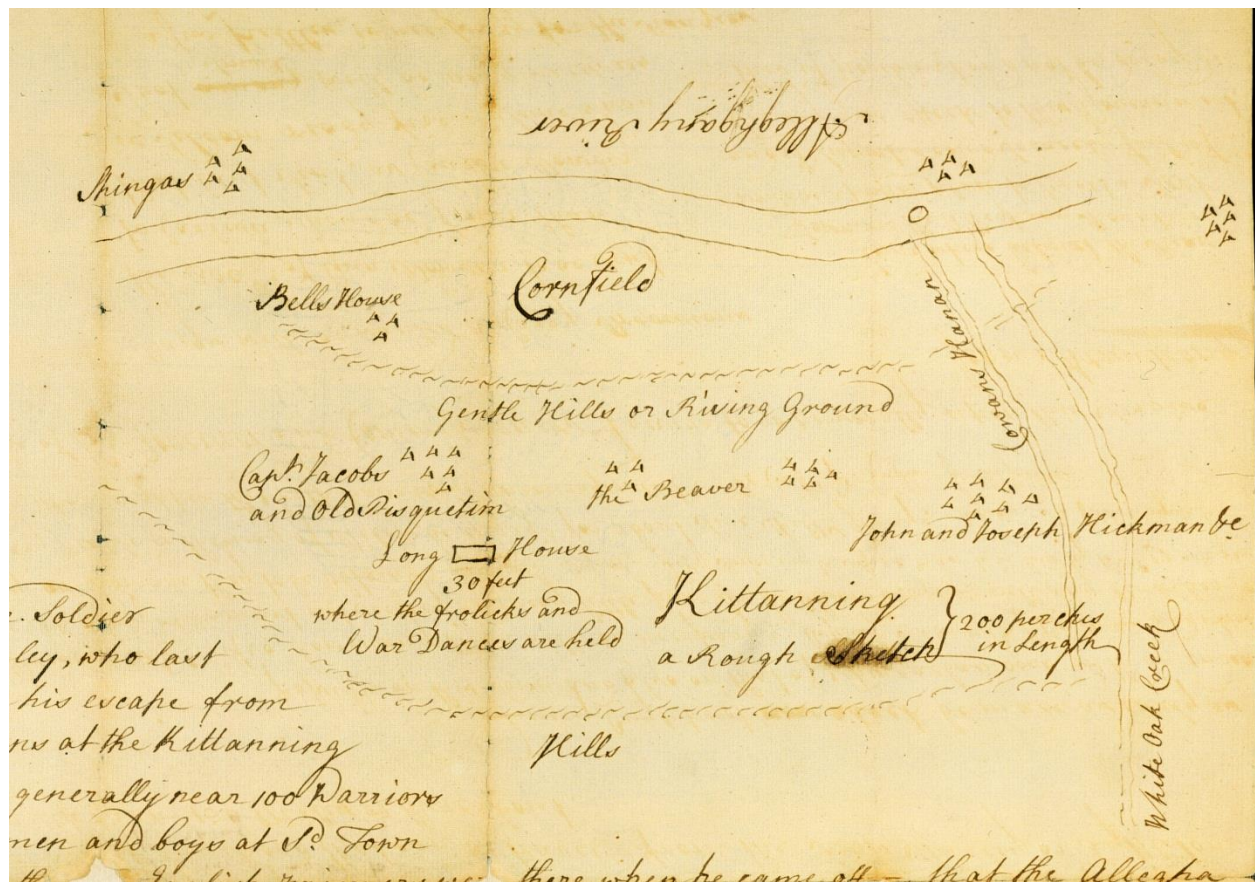 Alleghgany River
Shingas
Bells House
Cornfield
Cowans Hanan
Gentle Hills or Rising Ground
Capt. Jacobs
and Old Pisquetim
the Beaver
John and Joseph Hickman &c
Long House
30 feet
where the frolicks and
War Dances are held
Kittanning
a Rough Sketch
200 perches
in Length
White Oak Creek
Hills
e. Soldier
ley, who last
his escape from
ns at the Kittanning
generally near 100 Warriors
men and boys at Sd. Town
there when he came off - that the Allegha